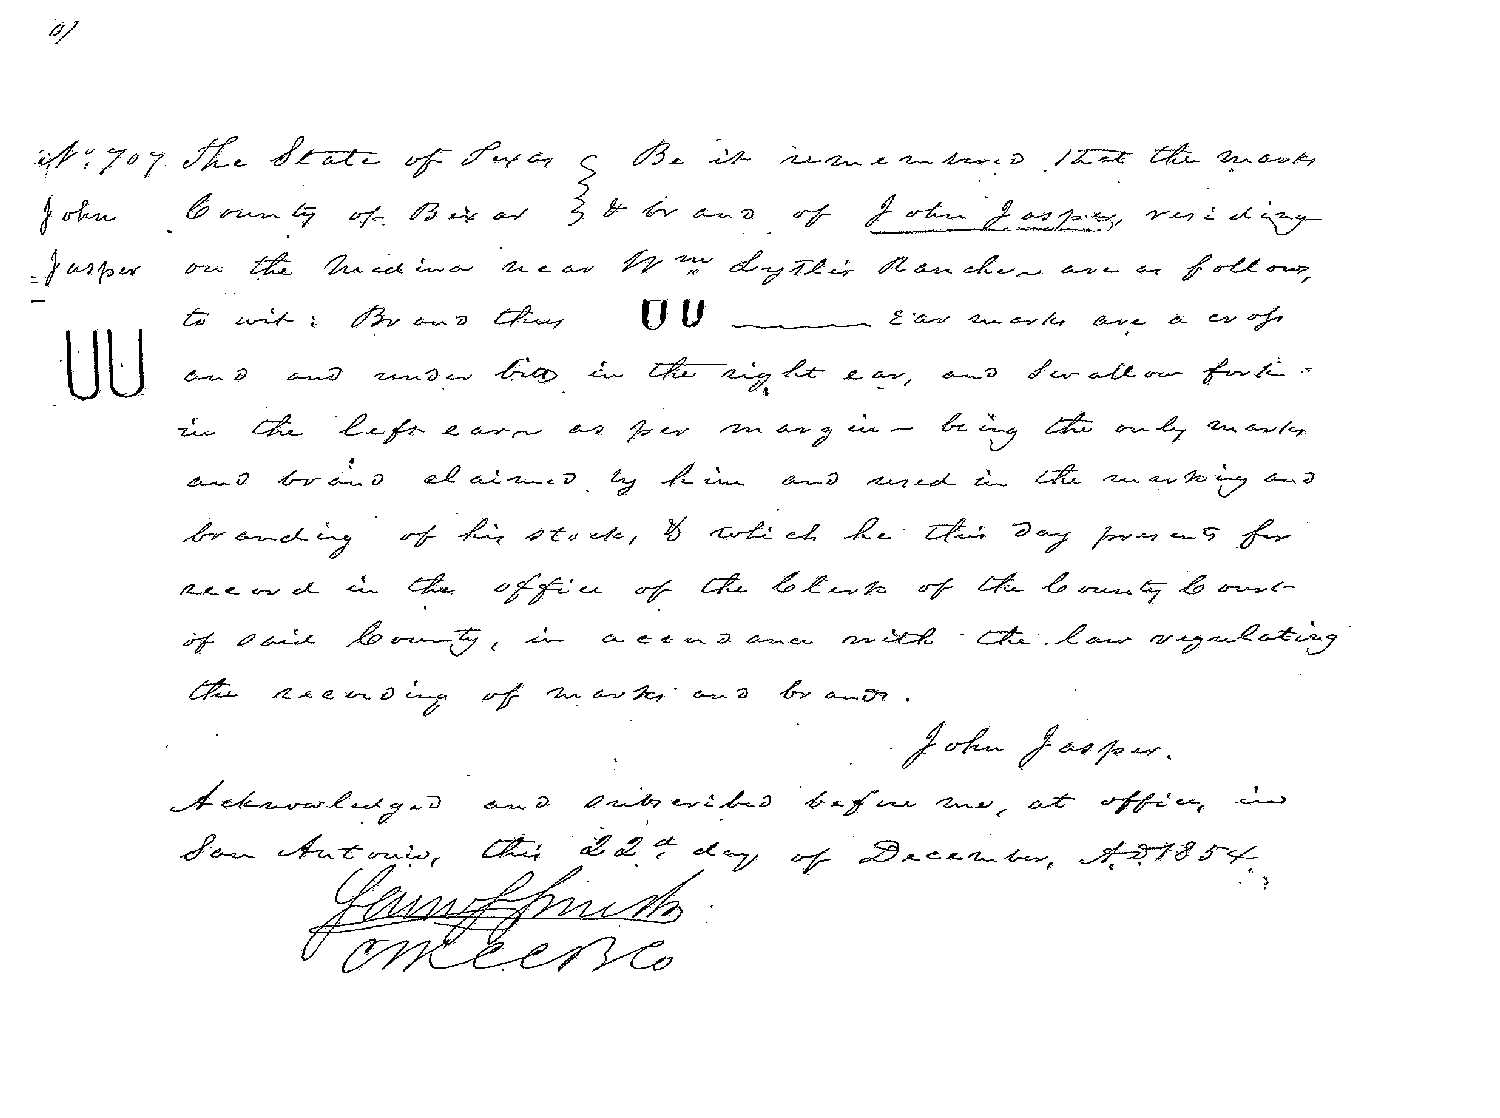 No. 707. The State of Texas } Be it remembered that the marks
John County of Bexar } & brand of John Jasper, residing
Jasper on the Medina near Wm Lytle's Ranch are as follows,
to wit: Brand thus UU Ear marks are a crop
UU and and under bit in the right ear, and Swallow fork
in the left ear as per margin - being the only marks
and brand claimed by him and used in the marking and
branding of his stock, & which he this day presents for
record in the office of the Clerk of the County Court
of said County, in accordance with the law regulating
the recording of marks and brands.
John Jasper.
Acknowledged and subscribed before me, at office, in
San Antonio, this 22d day of December, A.D. 1854.
CKCCBCo